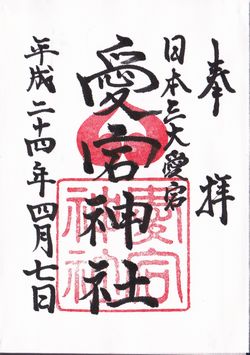 奉拝
日本三大愛宕
愛宕神社
平成二十四年四月七日